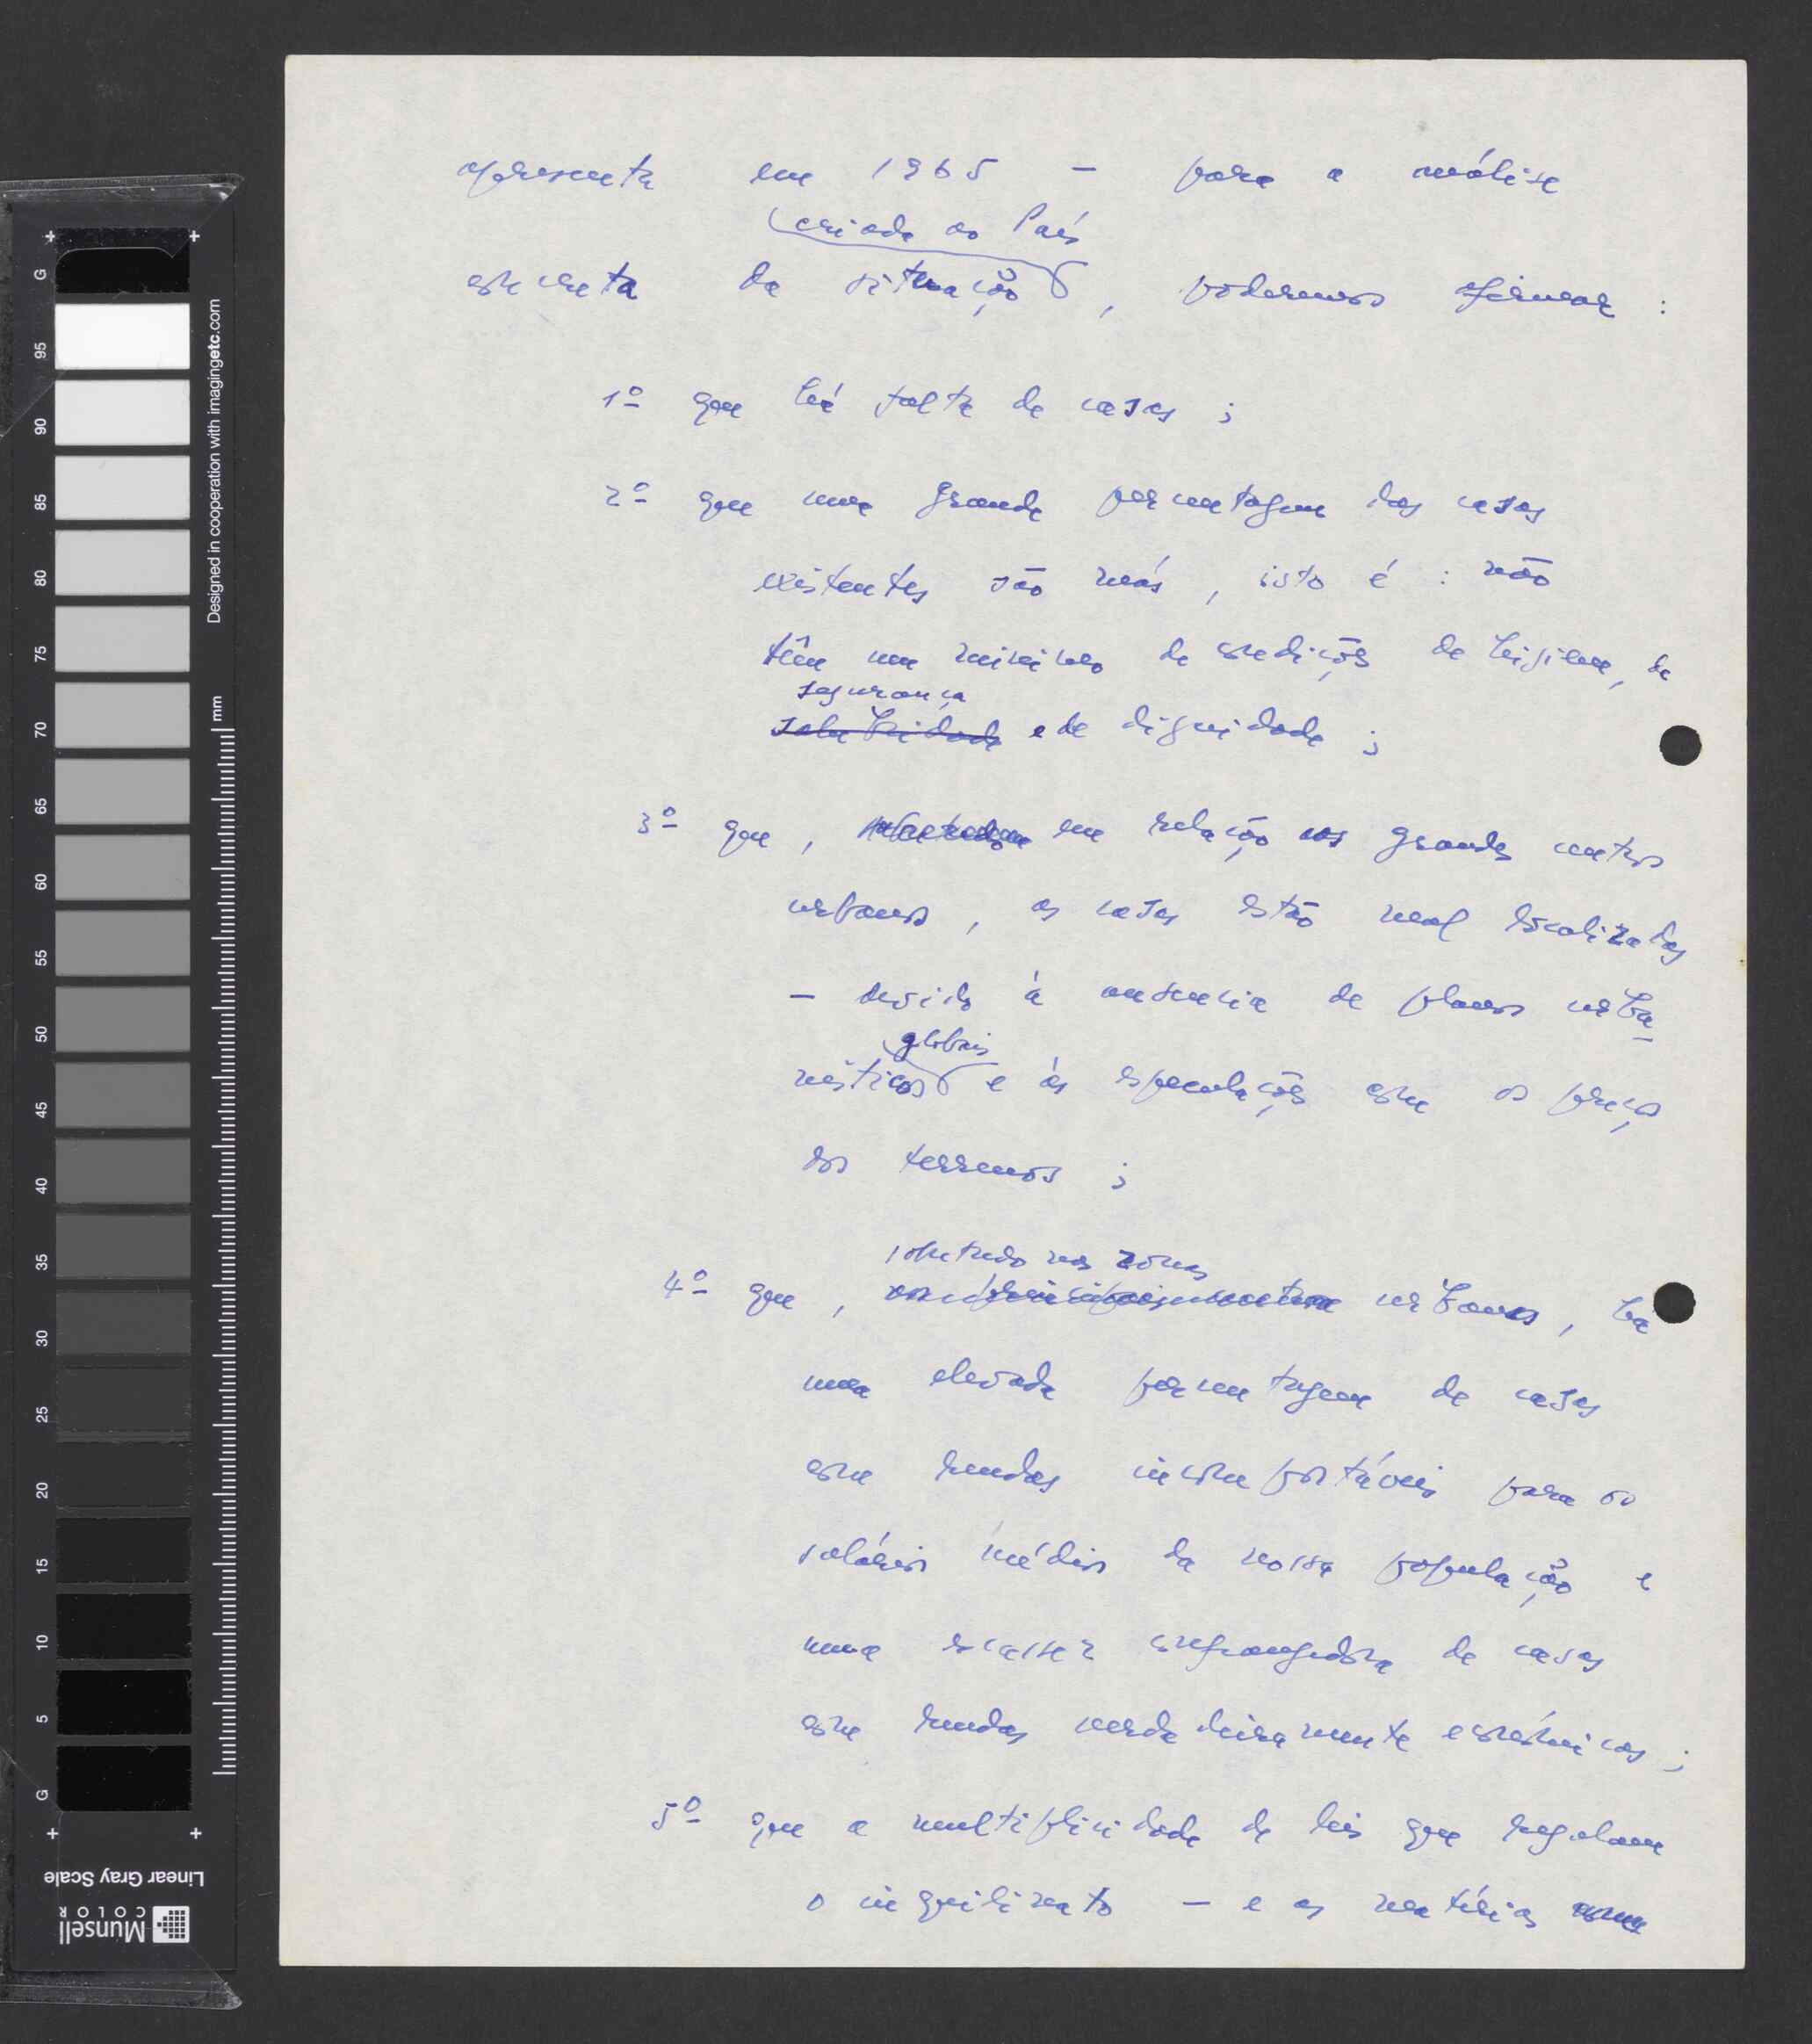 apresenta em 1965 — para a análise
criada ao País
concreta da situação, poderemos afirmar :
1º que há falta de casas ;
2º que uma grande percentagem das casas
existentes são más, isto é : não
têm um mínimo de condições de higiene, de
segurança
salubridade e de dignidade ;
3º que, em relação aos grandes centros
urbanos, as casas estão mal localizadas
— devido à ausencia de planos urba
globais
nísticos e às especulações com os preços
dos terrenos ;
sobretudo nas zonas
4º que, urbanas, há
uma elevada percentagem de casas
com rendas incomportáveis para os
salários médios da nossa população e
uma escassez confrangedora de casas
com rendas verdadeiramente económicas ;
5º que a multiplicidade de leis que regulam
o inquilinato — e as matérias
G
95
90
85
80
75
70
65
60
55
50
45
40
35
30
25
20
15
10
5
G
mm
Designed in cooperation with imagingetc.com
Linear Gray Scale
Munsell
COLOR